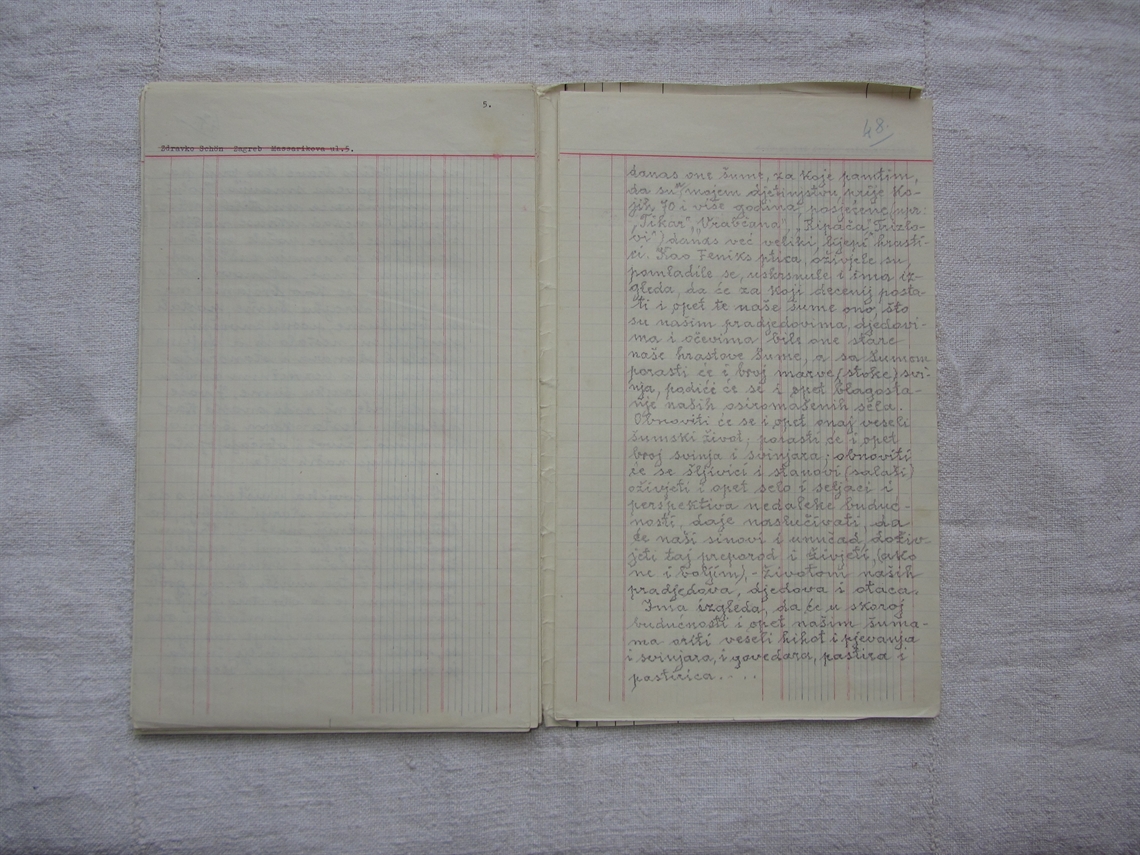 5.
Zdravko Schön Zagreb Massarikova ul.5.
48.
danas one šume, za koje pamtim,
da su u mojem djetinjstvu prije ko-
jih 70 i više godina posječene (npr:
"Tikar", "Vrabčana",
vi") danas već veliki, lijepi hrasti-
ći. Kao Feniks ptica, oživjele su,
pomladile se, uskrsnule i ima iz-
gleda, da će za koji decenij posta-
ti i opet te naše šume ono, što
su našim pradjedovima, djedovi-
ma i očevima bile one stare
naše hrastove šume, a sa šumom
porasti će i broj marve (stoke) svi-
nja, podići će se i opet blagosta-
nje naših osiromašenih sela.
Obnoviti će se i opet onaj veseli
šumski život; porasti će i opet
broj svinja i svinjara; obnoviti
će se šljivici i stanovi (salaši)
oživjeti i opet selo i seljaci i
perspektiva nedaleke buduć-
nosti, daje naslučivati, da
će naši sinovi i unučad doživ-
jeti taj preporod i živjeti, (ako
ne i boljim), - životom naših
pradjedova, djedova i otaca.
Ima izgleda, da će u skoroj
budućnosti i opet našim šuma-
ma oriti veseli hihot i pjevanja
i svinjara, i govedara, pastira i
pastirica. . . .